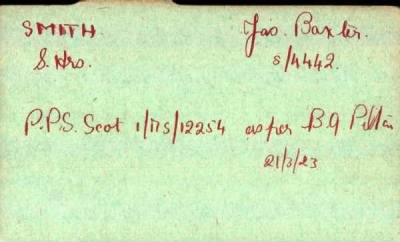 SMITH. Jas. Baxter.
S. Hrs. S/4442.
P.P.S. Scot 1/MS/12254 as per B.G
21/3/23